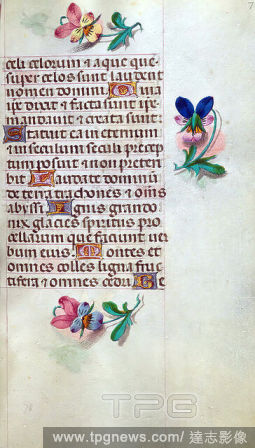 7
celi celorum ⁊ aque que
super celos sunt laudent
nomen domini Quia
ipse dixit ⁊ facta sunt ipse
mandauit ⁊ creata sunt
Statuit ea in eternum
⁊ in seculum seculi precep
tum posuit ⁊ non preteri
bit Laudate dominum
de terra dracones ⁊ omnes
abyssi. Ignis grando
nix glacies spiritus pro
cellarum que faciunt uer
bum eius. Montes et
omnes colles ligna fruc
tifera ⁊ omnes cedri
TPG
www.tpgnews.com/達志影像